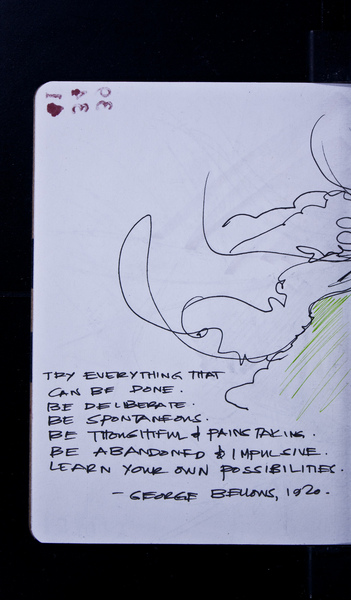 TRY EVERYTHING THAT
CAN BE DONE.
BE DELIBERATE.
BE SPONTANEOUS.
BE THOUGHTFUL & PAINSTAKING.
BE ABANDONED & IMPULSIVE.
LEARN YOUR OWN POSSIBILITIES.
— GEORGE BELLOWS, 1920.